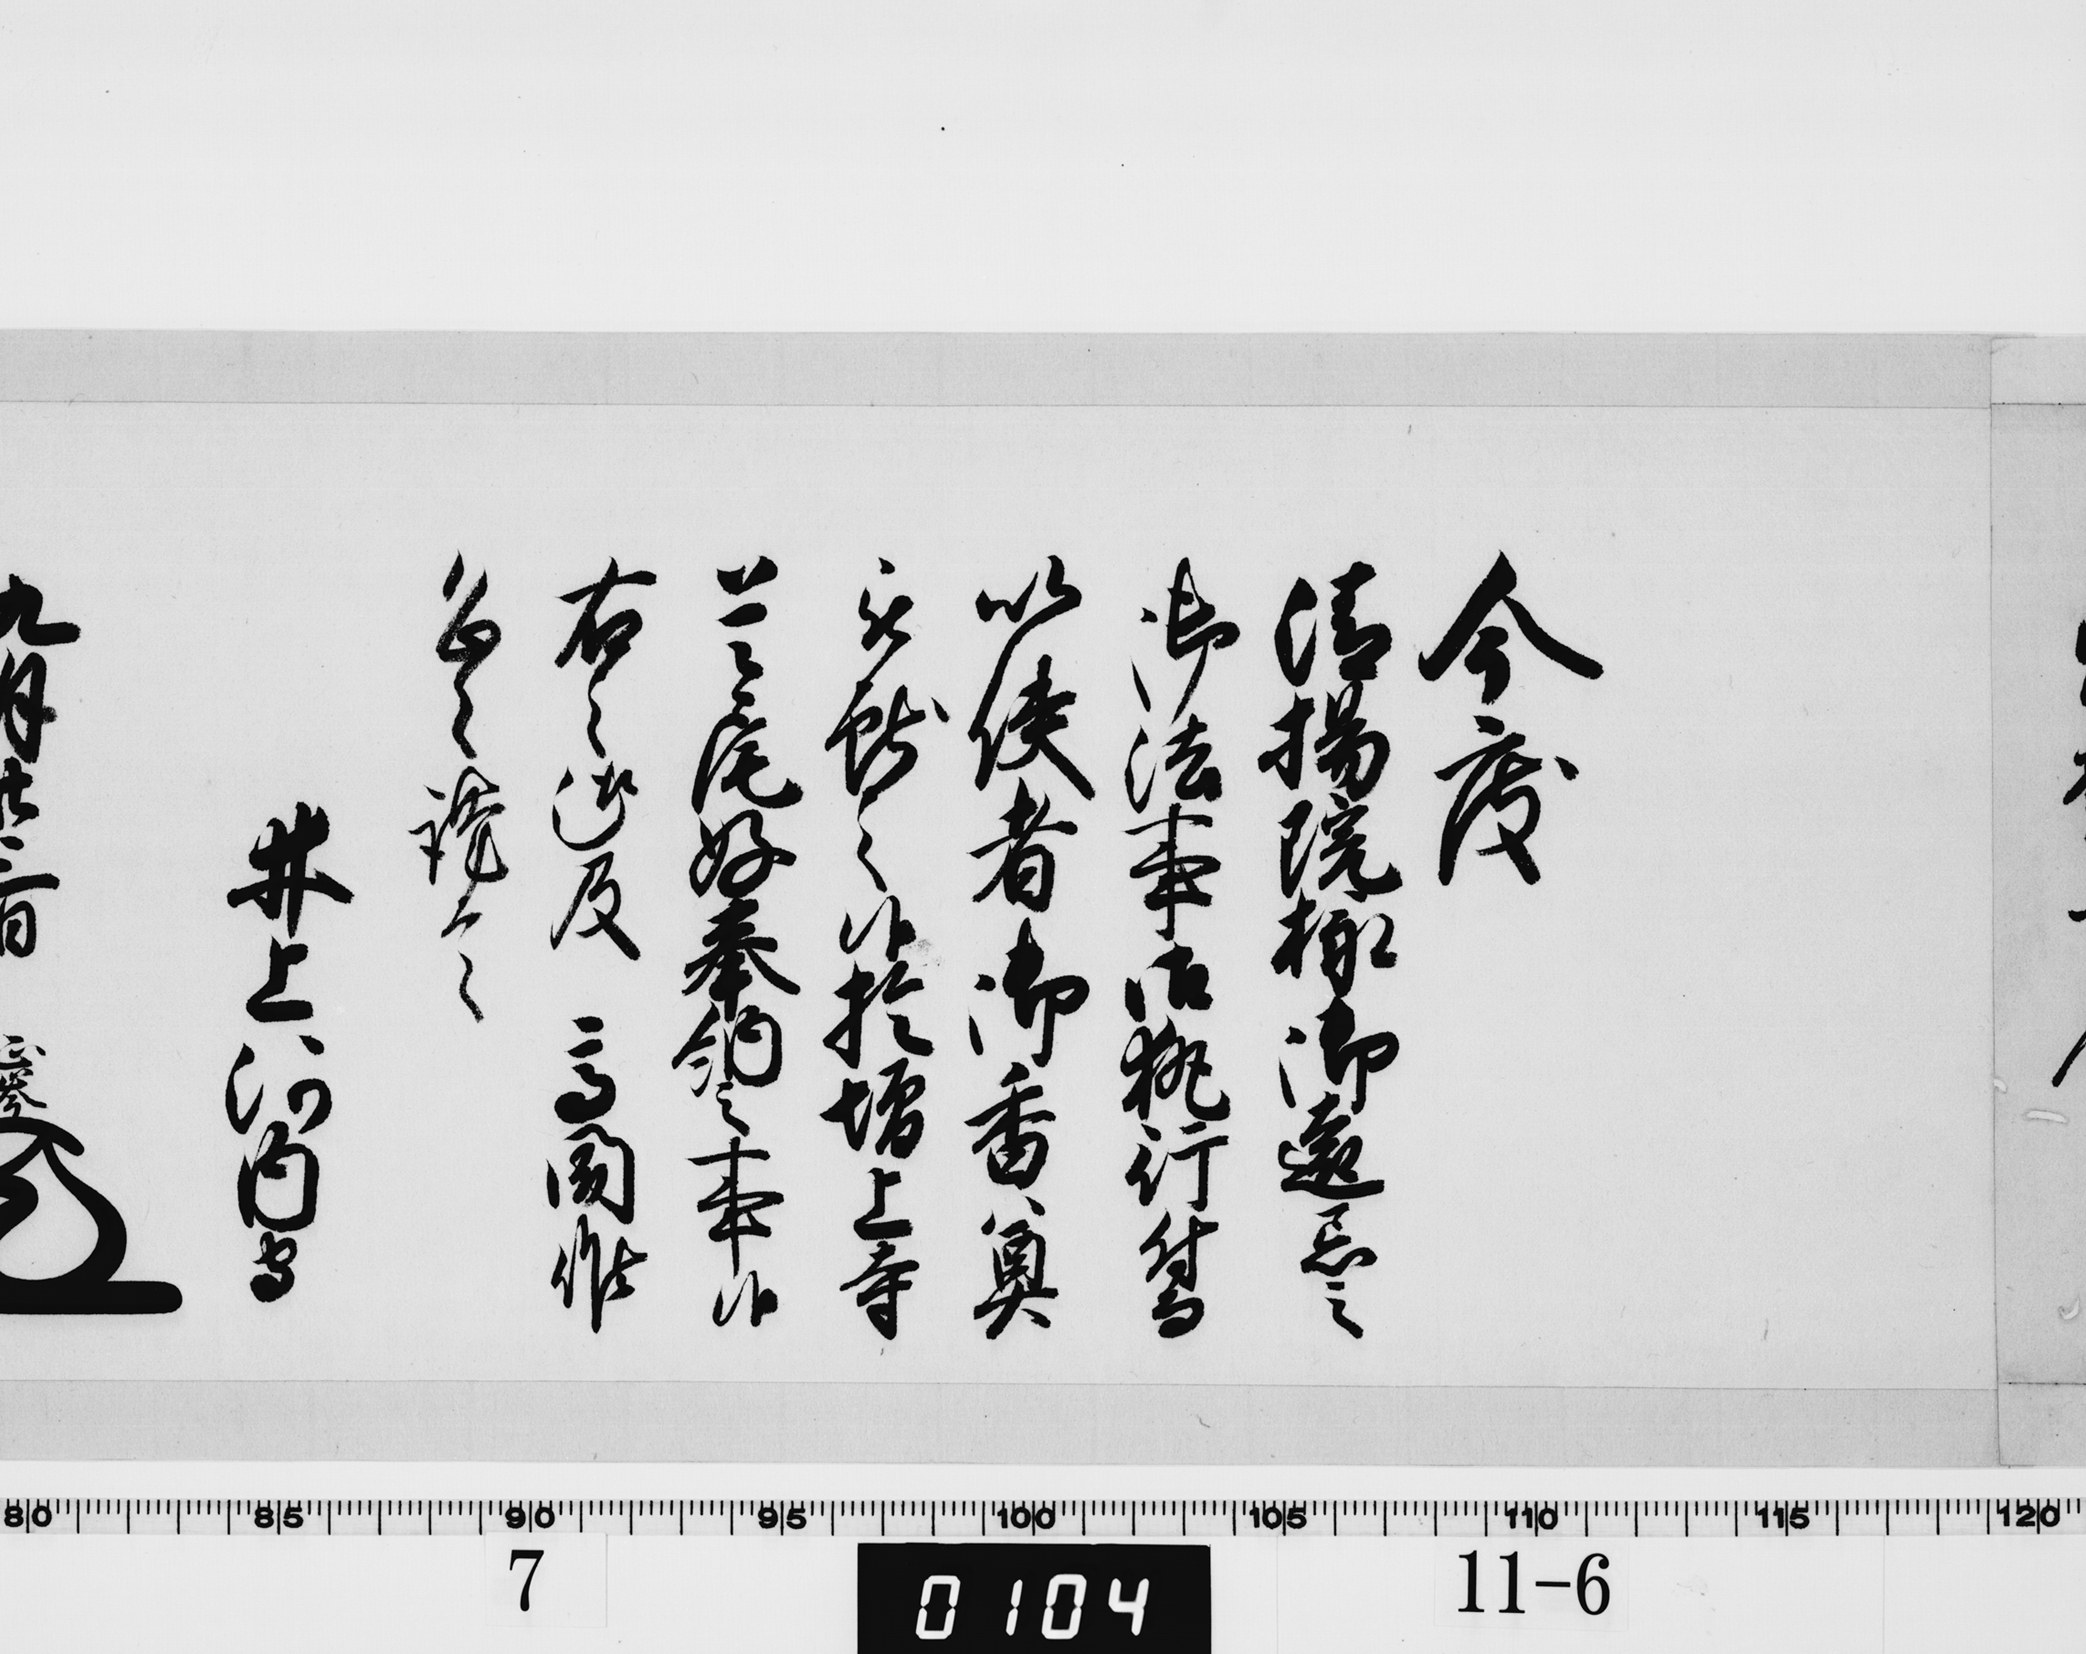 今度
清揚院様御遠忌之
御法事御執行付而
以使者御香奠
被献之候於増上寺
首尾好奉納之事候
右之趣及　高聞候
恐々謹言
井上河内守
九月廿　日　正岑
80 85 90 95 100 105 110 115 120
7
0104
11-6